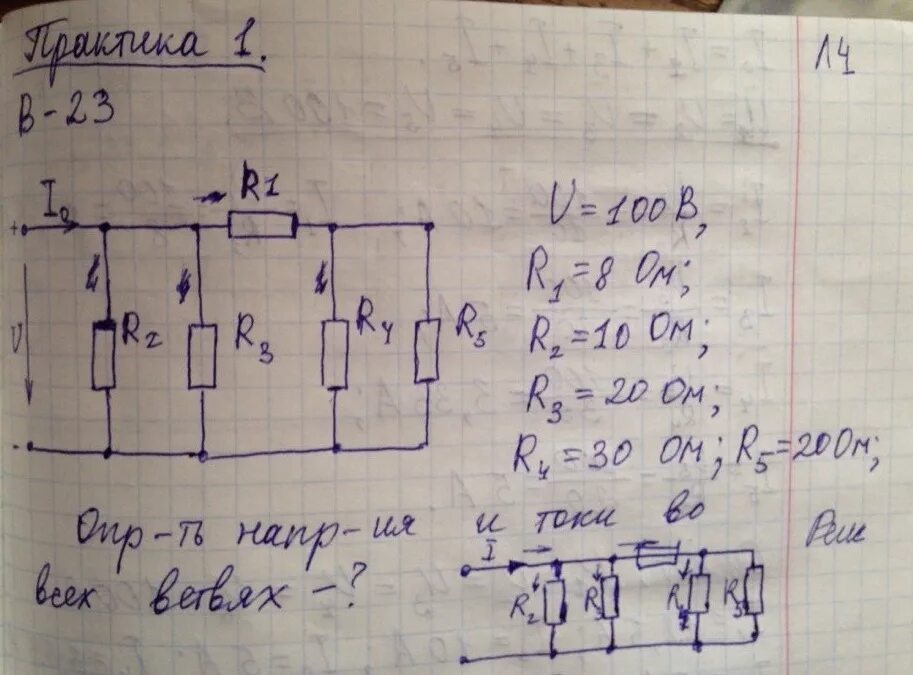 Практика 1.
14
В-23
I₀
R1
U
R2
R3
R4
R5
U=100 В,
R1=8 Ом;
R2=10 Ом;
R3=20 Ом;
R4=30 Ом; R5=20 Ом;
Опр-ть напр-ия и токи во
всех ветвях -?
I
R2
R
R